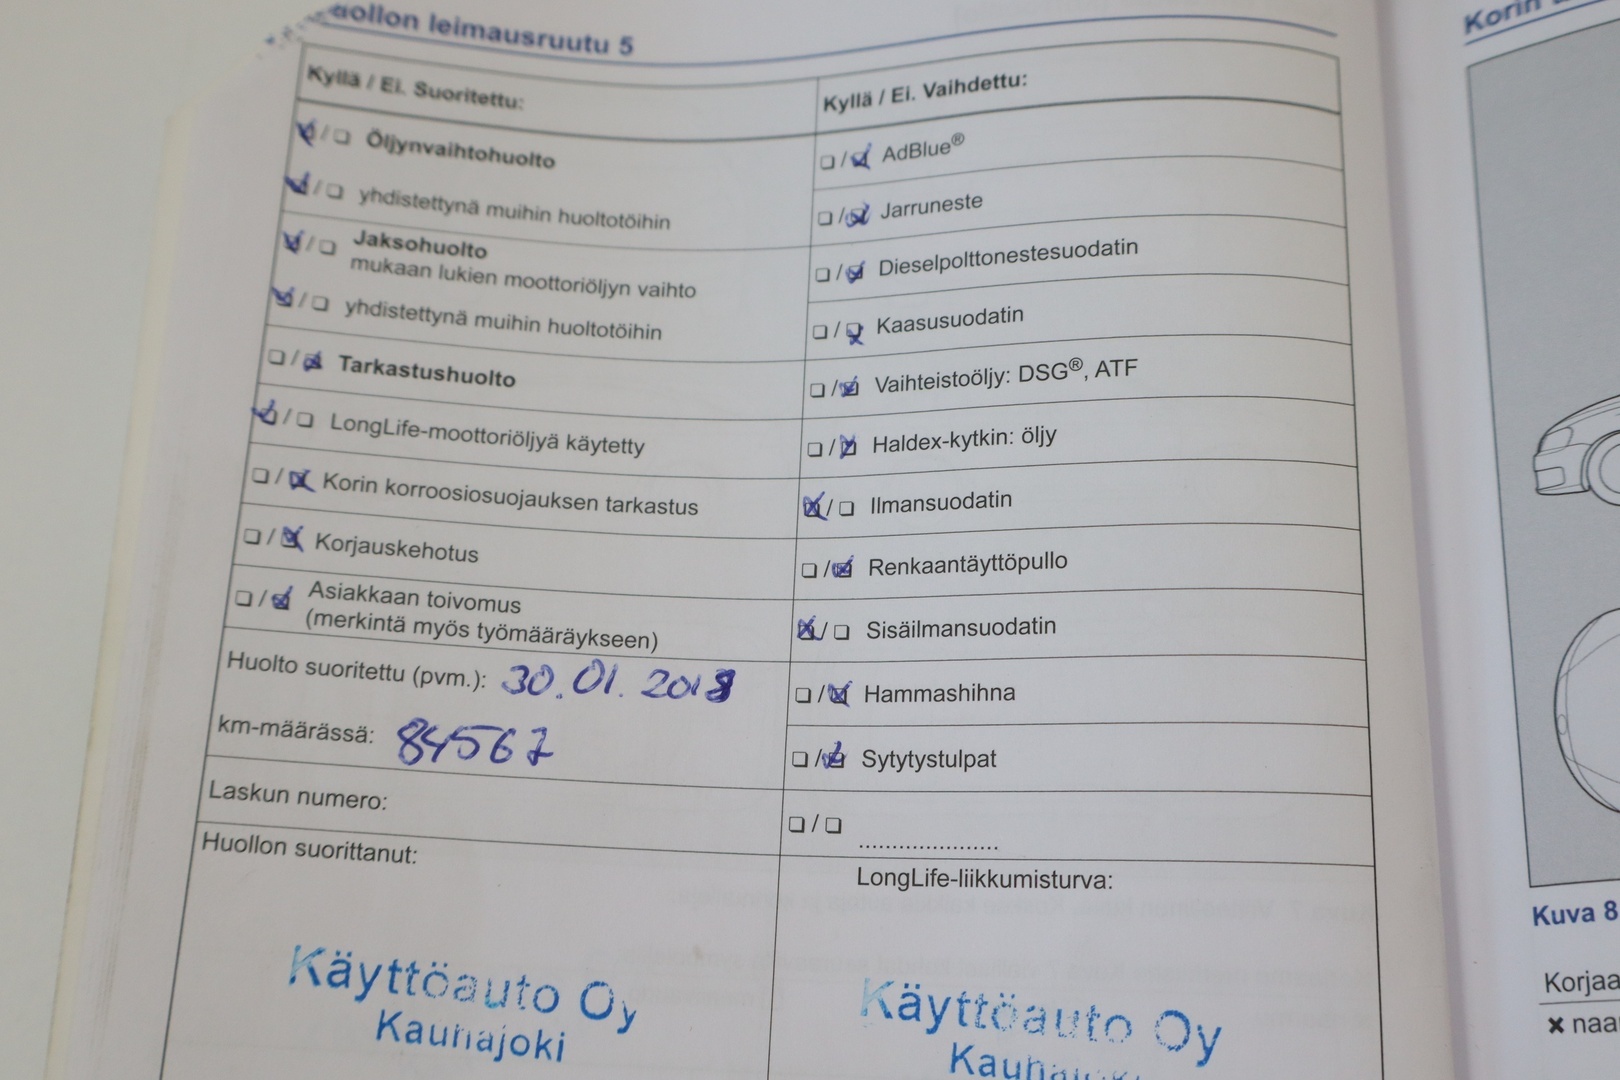 uollon leimausruutu 5
Kyllä / Ei. Suoritettu:
Öljynvaihtohuolto
yhdistettynä muihin huoltotöihin
Jaksohuolto
mukaan lukien moottoriöljyn vaihto
yhdistettynä muihin huoltotöihin
Tarkastushuolto
LongLife-moottoriöljyä käytetty
Korin korroosiosuojauksen tarkastus
Korjauskehotus
Asiakkaan toivomus
(merkintä myös työmääräykseen)
Huolto suoritettu (pvm.): 30.01.2018
km-määrässä: 84567
Laskun numero:
Huollon suorittanut:
Käyttöauto Oy
Kauhajoki
Kyllä / Ei. Vaihdettu:
AdBlue®
Jarruneste
Dieselpolttonestesuodatin
Kaasusuodatin
Vaihteistoöljy: DSG®, ATF
Haldex-kytkin: öljy
Ilmansuodatin
Renkaantäyttöpullo
Sisäilmansuodatin
Hammashihna
Sytytystulpat
LongLife-liikkumisturva:
Käyttöauto Oy
Korin
Kuva 8
Korjaa
× naa